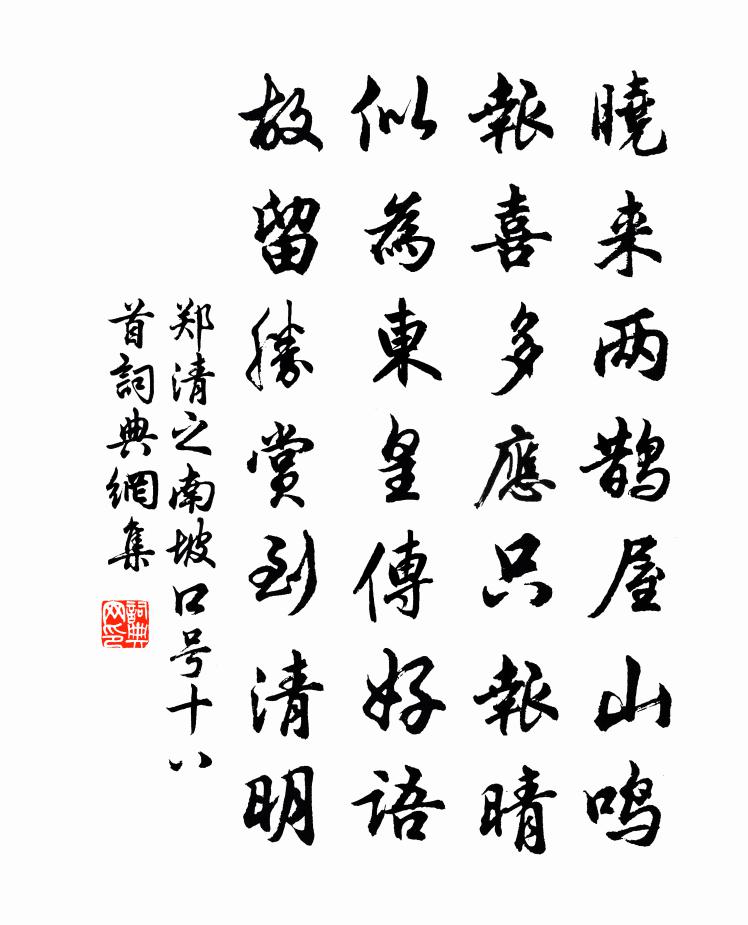 曉来两鹊屋山鸣
報喜多應只報晴
似為東皇傳好語
故留勝賞到清明
郑清之南坡口号十八
首詞典網集
詞典网印